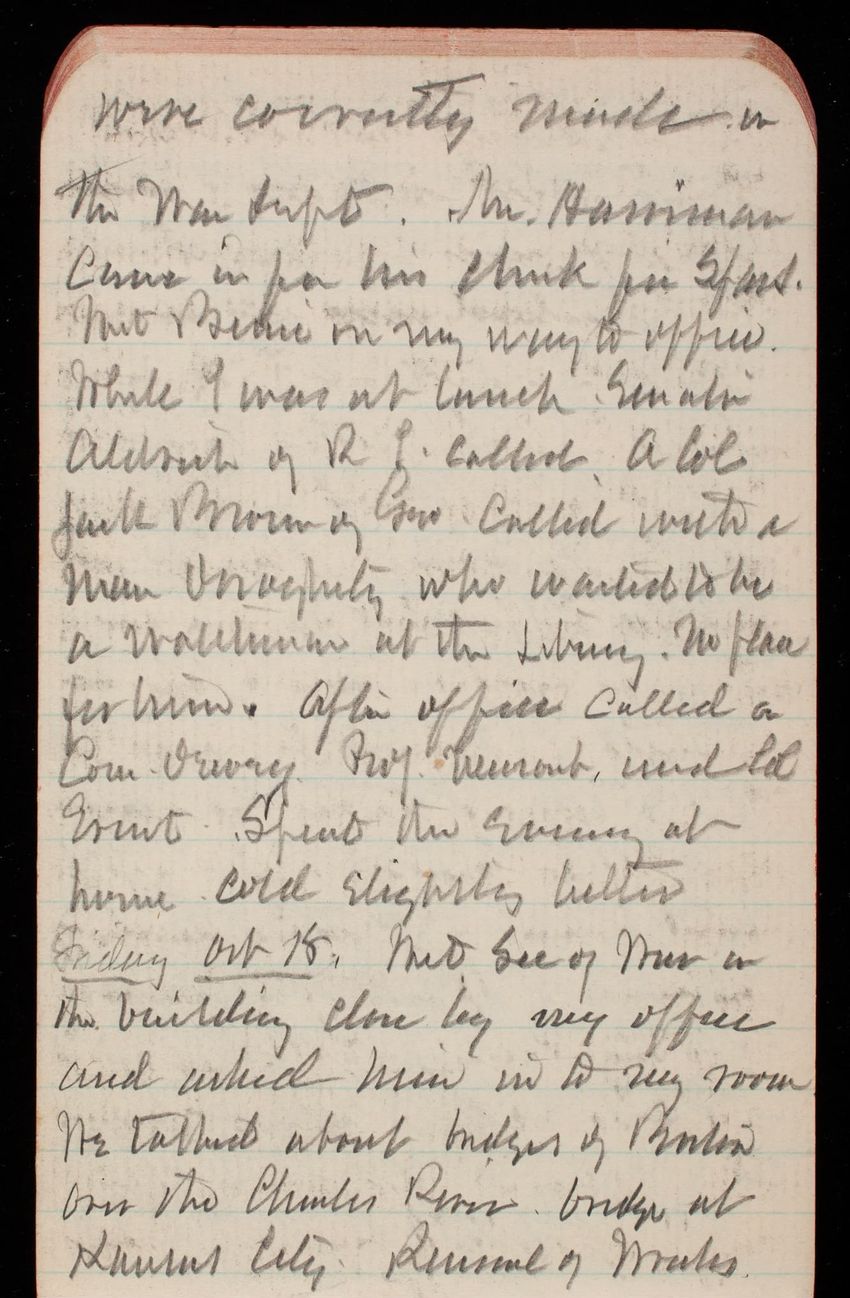 were correctly made in
the War Dept. Mr. Harriman
Came in for his check for Sfast.
Met Bernie on my way to office.
While I was at lunch Senator
Aldrich of R I. called. A Col
Jack Brown of Geo called with a
man who wanted to be
a watchman at the Library. No place
for him. After office called a
Com. Drewry. Prof. and Col
Ernst. Spent the Evening at
home cold slightly better
Friday Oct 18. Met Sec of War in
the building close by my office
and asked him in to my room
We talked about bridges of Boston
over the Charles River. bridge at
Kansas City. Removal of Wrecks.